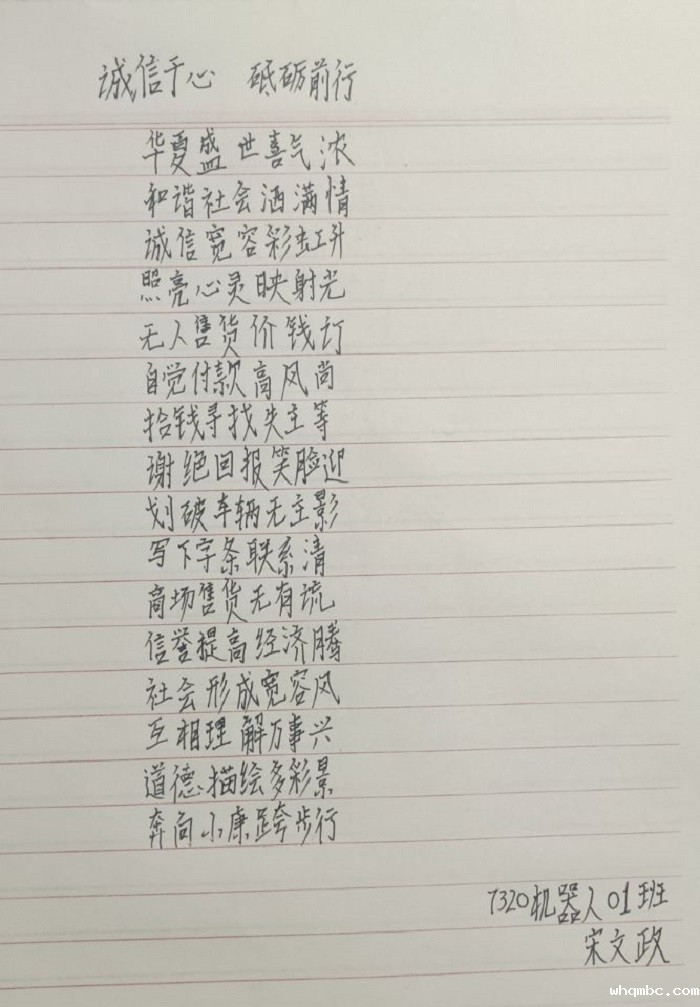 诚信于心 砥砺前行
华夏盛世喜气浓
和谐社会洒满情
诚信宽容彩虹升
照亮心灵映射光
无人售货价钱订
自觉付款高风尚
拾钱寻找失主等
谢绝回报笑脸迎
划破车辆无主影
写下字条联系清
商场售货无有谎
信誉提高经济腾
社会形成宽容风
互相理解万事兴
道德描绘多彩景
奔向小康跨步行
7320机器人01班
宋文政
whqmbc.com